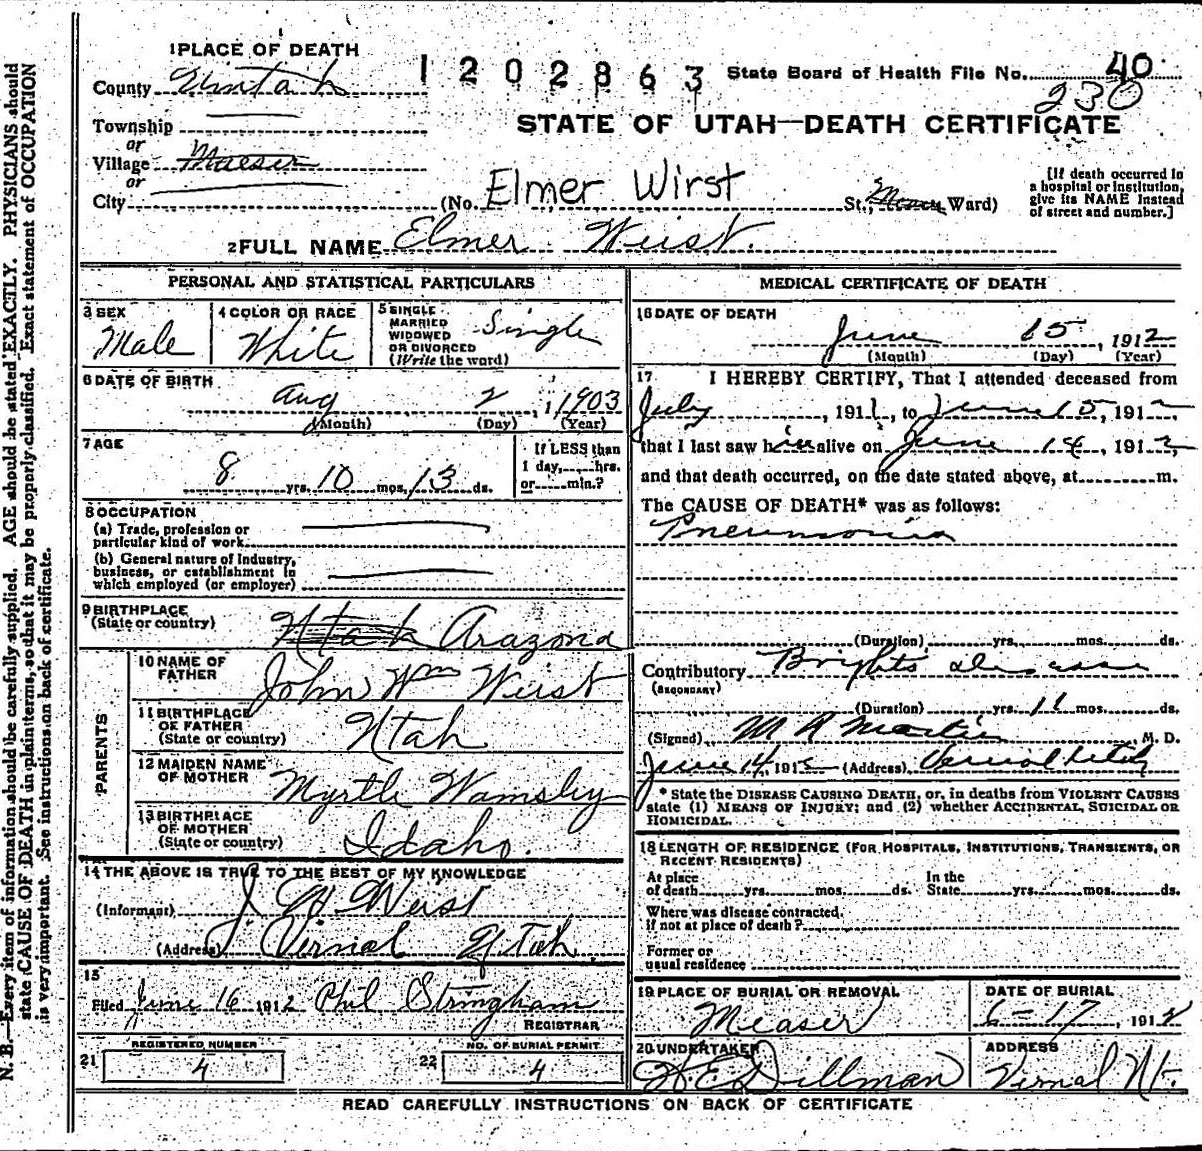 1 PLACE OF DEATH
1202863
State Board of Health File No. 40
230
County Uintah
STATE OF UTAH—DEATH CERTIFICATE
Township
or
Village Maeser
or
City
(No. Elmer Wirst St., Ward)
[If death occurred in a hospital or institution, give its NAME instead of street and number.]
2 FULL NAME Elmer Weist.
PERSONAL AND STATISTICAL PARTICULARS
3 SEX
Male
4 COLOR OR RACE
White
5 SINGLE
MARRIED
WIDOWED
OR DIVORCED
(Write the word)
Single
6 DATE OF BIRTH
Aug 2, 1903
(Month) (Day) (Year)
7 AGE
8 yrs. 10 mos. 13 ds.
If LESS than
1 day, hrs.
or min.?
8 OCCUPATION
(a) Trade, profession or
particular kind of work
(b) General nature of Industry,
business, or establishment in
which employed (or employer)
9 BIRTHPLACE
(State or country)
Utah Arazona
PARENTS
10 NAME OF
FATHER
John Wm Weist
11 BIRTHPLACE
OF FATHER
(State or country)
Utah
12 MAIDEN NAME
OF MOTHER
Myrtle Wamsley
13 BIRTHPLACE
OF MOTHER
(State or country)
Idaho.
14 THE ABOVE IS TRUE TO THE BEST OF MY KNOWLEDGE
(Informant) J W Weist
(Address) Vernal Utah
15
Filed June 16 1912 Phil Stringham
REGISTRAR
21 REGISTERED NUMBER
4
22 NO. OF BURIAL PERMIT
4
MEDICAL CERTIFICATE OF DEATH
16 DATE OF DEATH
June 15, 1912
(Month) (Day) (Year)
17 I HEREBY CERTIFY, That I attended deceased from
July, 1911, to June 15, 1912,
that I last saw him alive on June 14, 1912,
and that death occurred, on the date stated above, at m.
The CAUSE OF DEATH* was as follows:
Pneumonia
(Duration) yrs. mos. ds.
Contributory Brights disease
(SECONDARY)
(Duration) yrs. 11 mos. ds.
(Signed) M R Martin M. D.
June 14, 1912 (Address) Vernal Utah
* State the DISEASE CAUSING DEATH, or, in deaths from VIOLENT CAUSES
state (1) MEANS OF INJURY; and (2) whether ACCIDENTAL, SUICIDAL OR
HOMICIDAL.
18 LENGTH OF RESIDENCE (FOR HOSPITALS, INSTITUTIONS, TRANSIENTS, OR
RECENT RESIDENTS)
At place
of death yrs. mos. ds.
In the
State yrs. mos. ds.
Where was disease contracted,
if not at place of death?
Former or
usual residence
19 PLACE OF BURIAL OR REMOVAL
Measer
DATE OF BURIAL
6-17, 1912
20 UNDERTAKER
W.E. Dillman
ADDRESS
Vernal Ut.
READ CAREFULLY INSTRUCTIONS ON BACK OF CERTIFICATE
N. B.—Every item of information should be carefully supplied. AGE should be stated EXACTLY. PHYSICIANS should
state CAUSE OF DEATH in plain terms, so that it may be properly classified. Exact statement of OCCUPATION
is very important. See instructions on back of certificate.